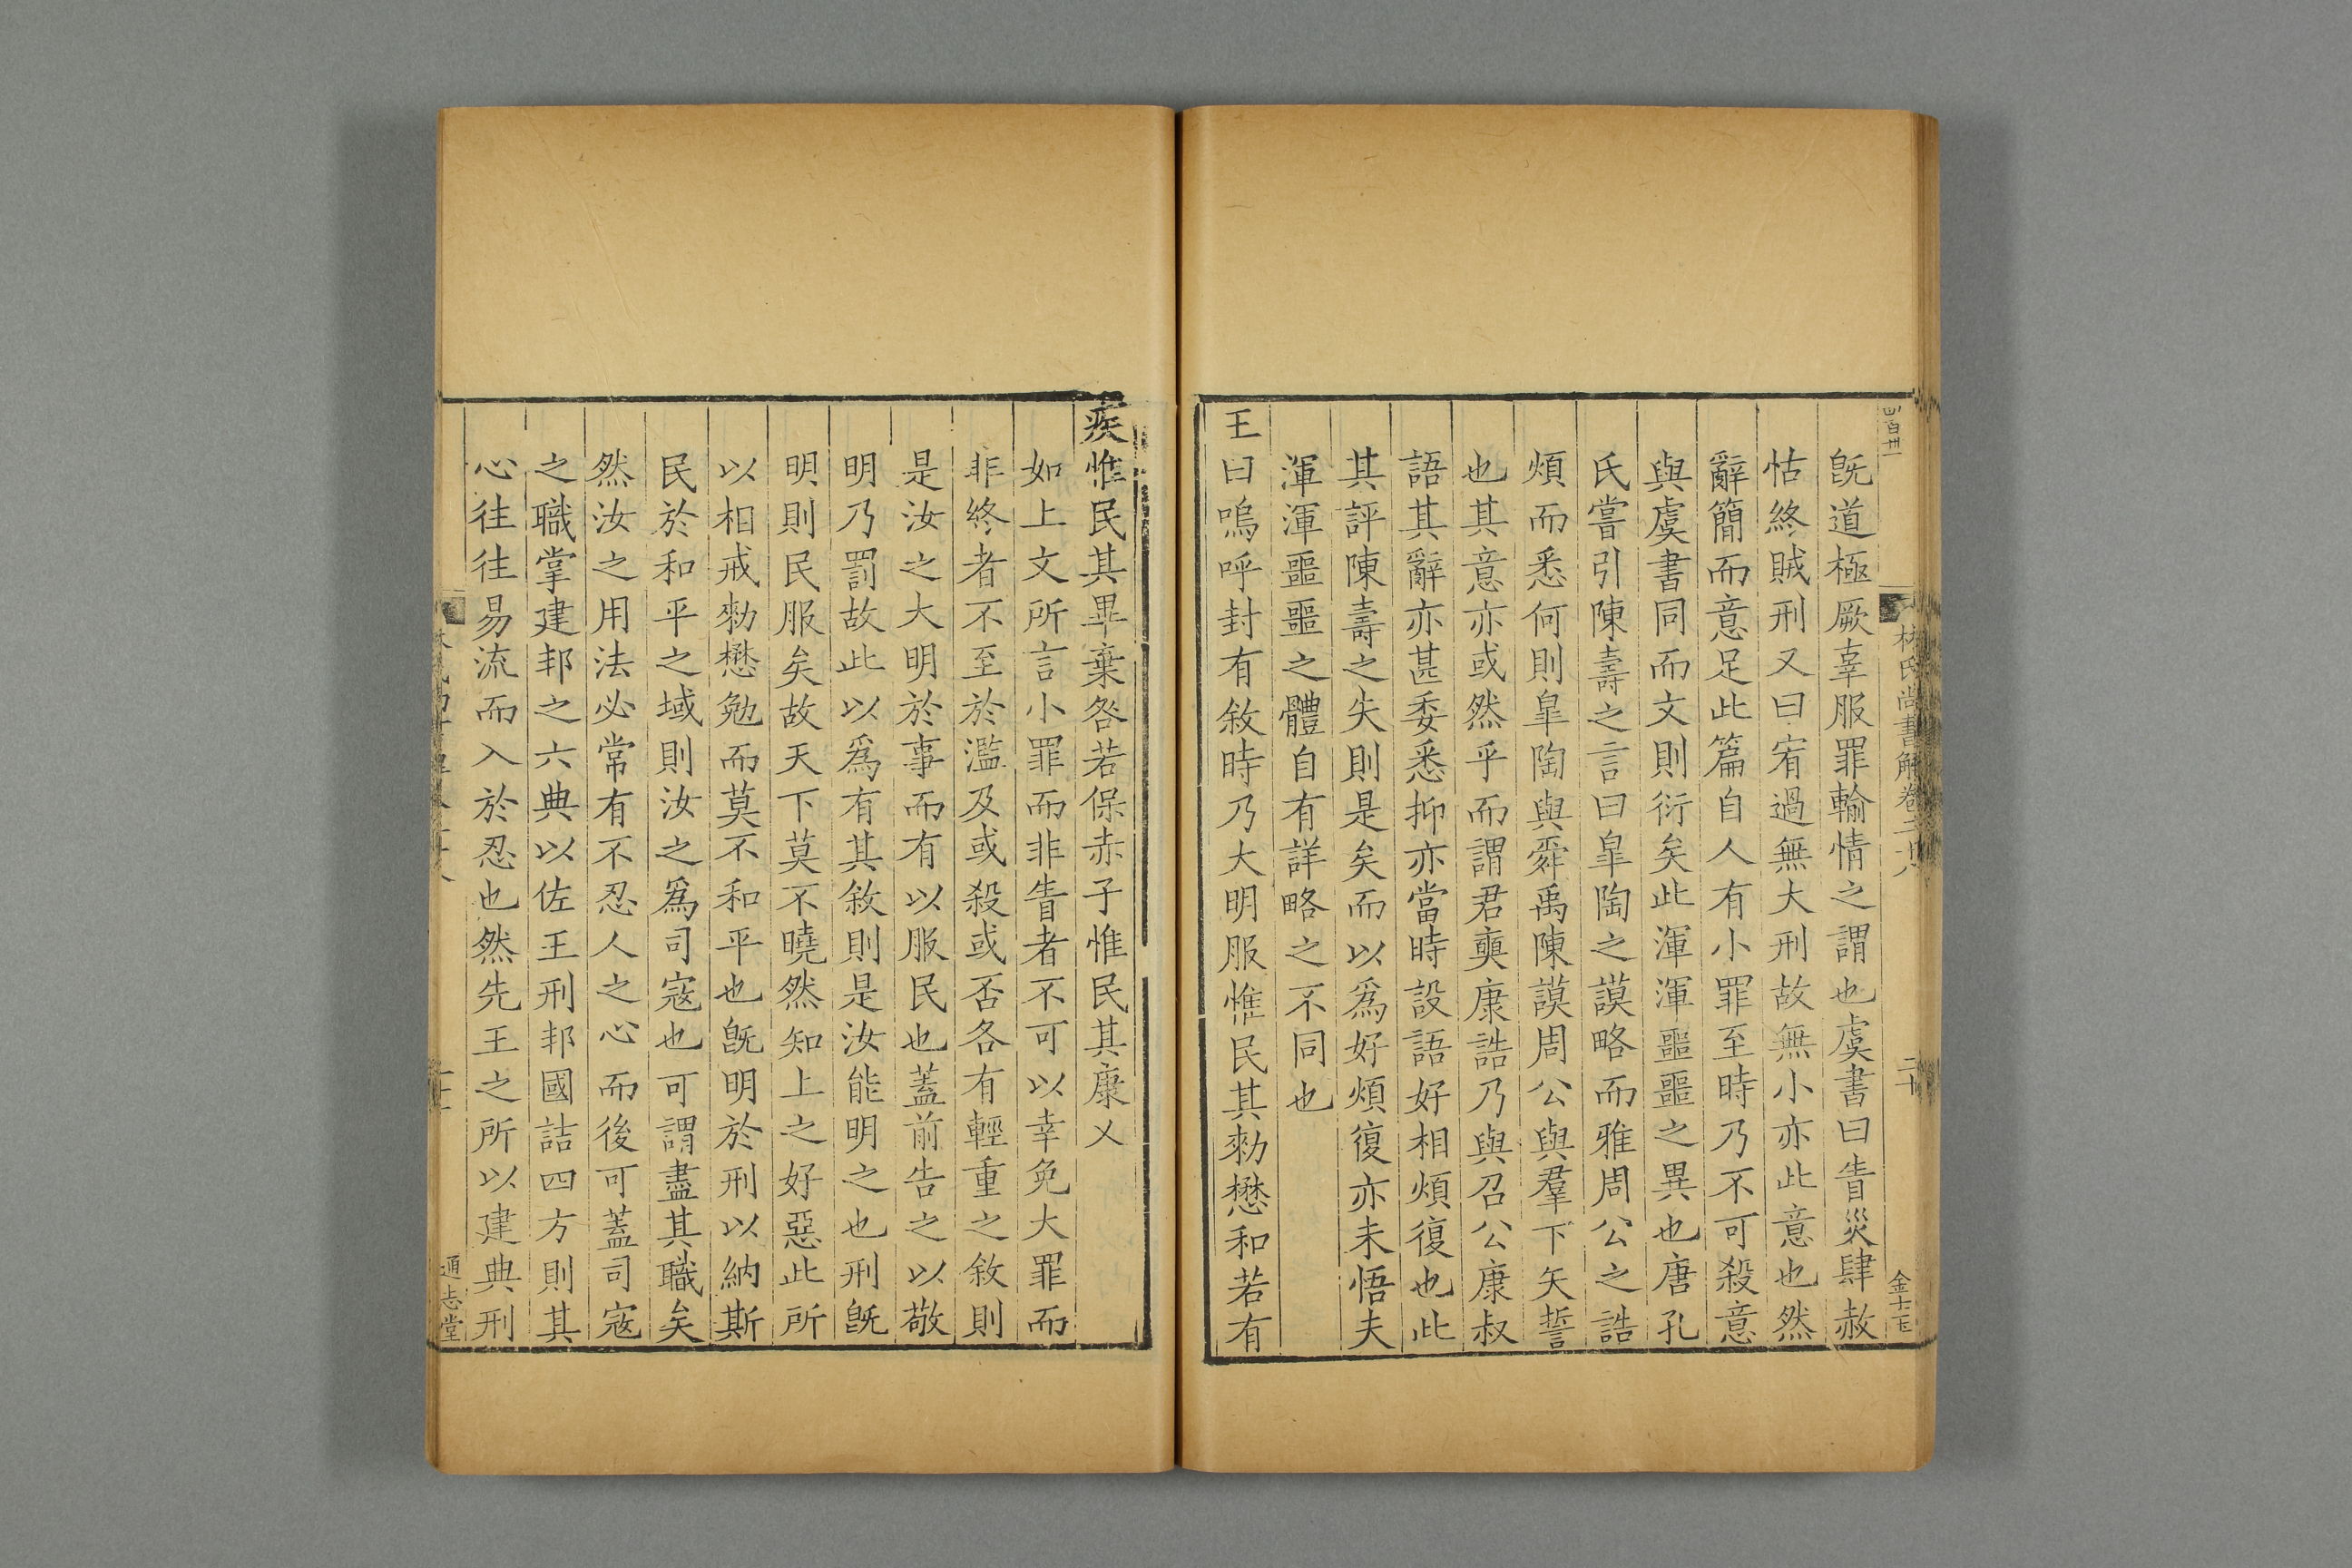 四百卅二
林氏尚書解卷二十八
二十
金士玉
旣道極厥辜服罪輸情之謂也虞書曰眚災肆赦
怙終賊刑又曰宥過無大刑故無小亦此意也然
辭簡而意足此篇自人有小罪至時乃不可殺意
與虞書同而文則衍矣此渾渾噩噩之異也唐孔
氏嘗引陳壽之言曰皐陶之謨略而雅周公之誥
煩而悉何則皐陶與舜禹陳謨周公與羣下矢誓
也其意亦或然乎而謂君奭康誥乃與召公康叔
語其辭亦甚委悉抑亦當時設語好相煩復也此
其評陳壽之失則是矣而以爲好煩復亦未悟夫
渾渾噩噩之體自有詳略之不同也
王曰嗚呼封有敘時乃大明服惟民其勑懋和若有
疾惟民其畢棄咎若保赤子惟民其康乂
如上文所言小罪而非眚者不可以幸免大罪而
非終者不至於濫及或殺或否各有輕重之敘則
是汝之大明於事而有以服民也蓋前告之以敬
明乃罰故此以爲有其敘則是汝能明之也刑旣
明則民服矣故天下莫不曉然知上之好惡此所
以相戒勑懋勉而莫不和平也旣明於刑以納斯
民於和平之域則汝之爲司寇也可謂盡其職矣
然汝之用法必常有不忍人之心而後可蓋司寇
之職掌建邦之六典以佐王刑邦國詰四方則其
心往往易流而入於忍也然先王之所以建典刑
通志堂